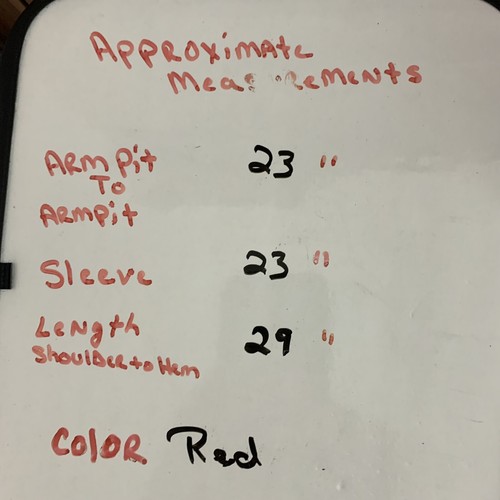 Approximate
Measurements
ArmPit 23 "
To
ArmPit
Sleeve 23 "
Length 29 "
Shoulder to Hem
Color Red